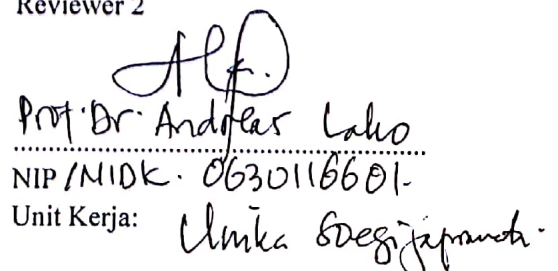 Reviewer 2
Prof. Dr. Andreas Lako
NIP/NIDK. 0630116601.
Unit Kerja: Unika Soegijapranata.